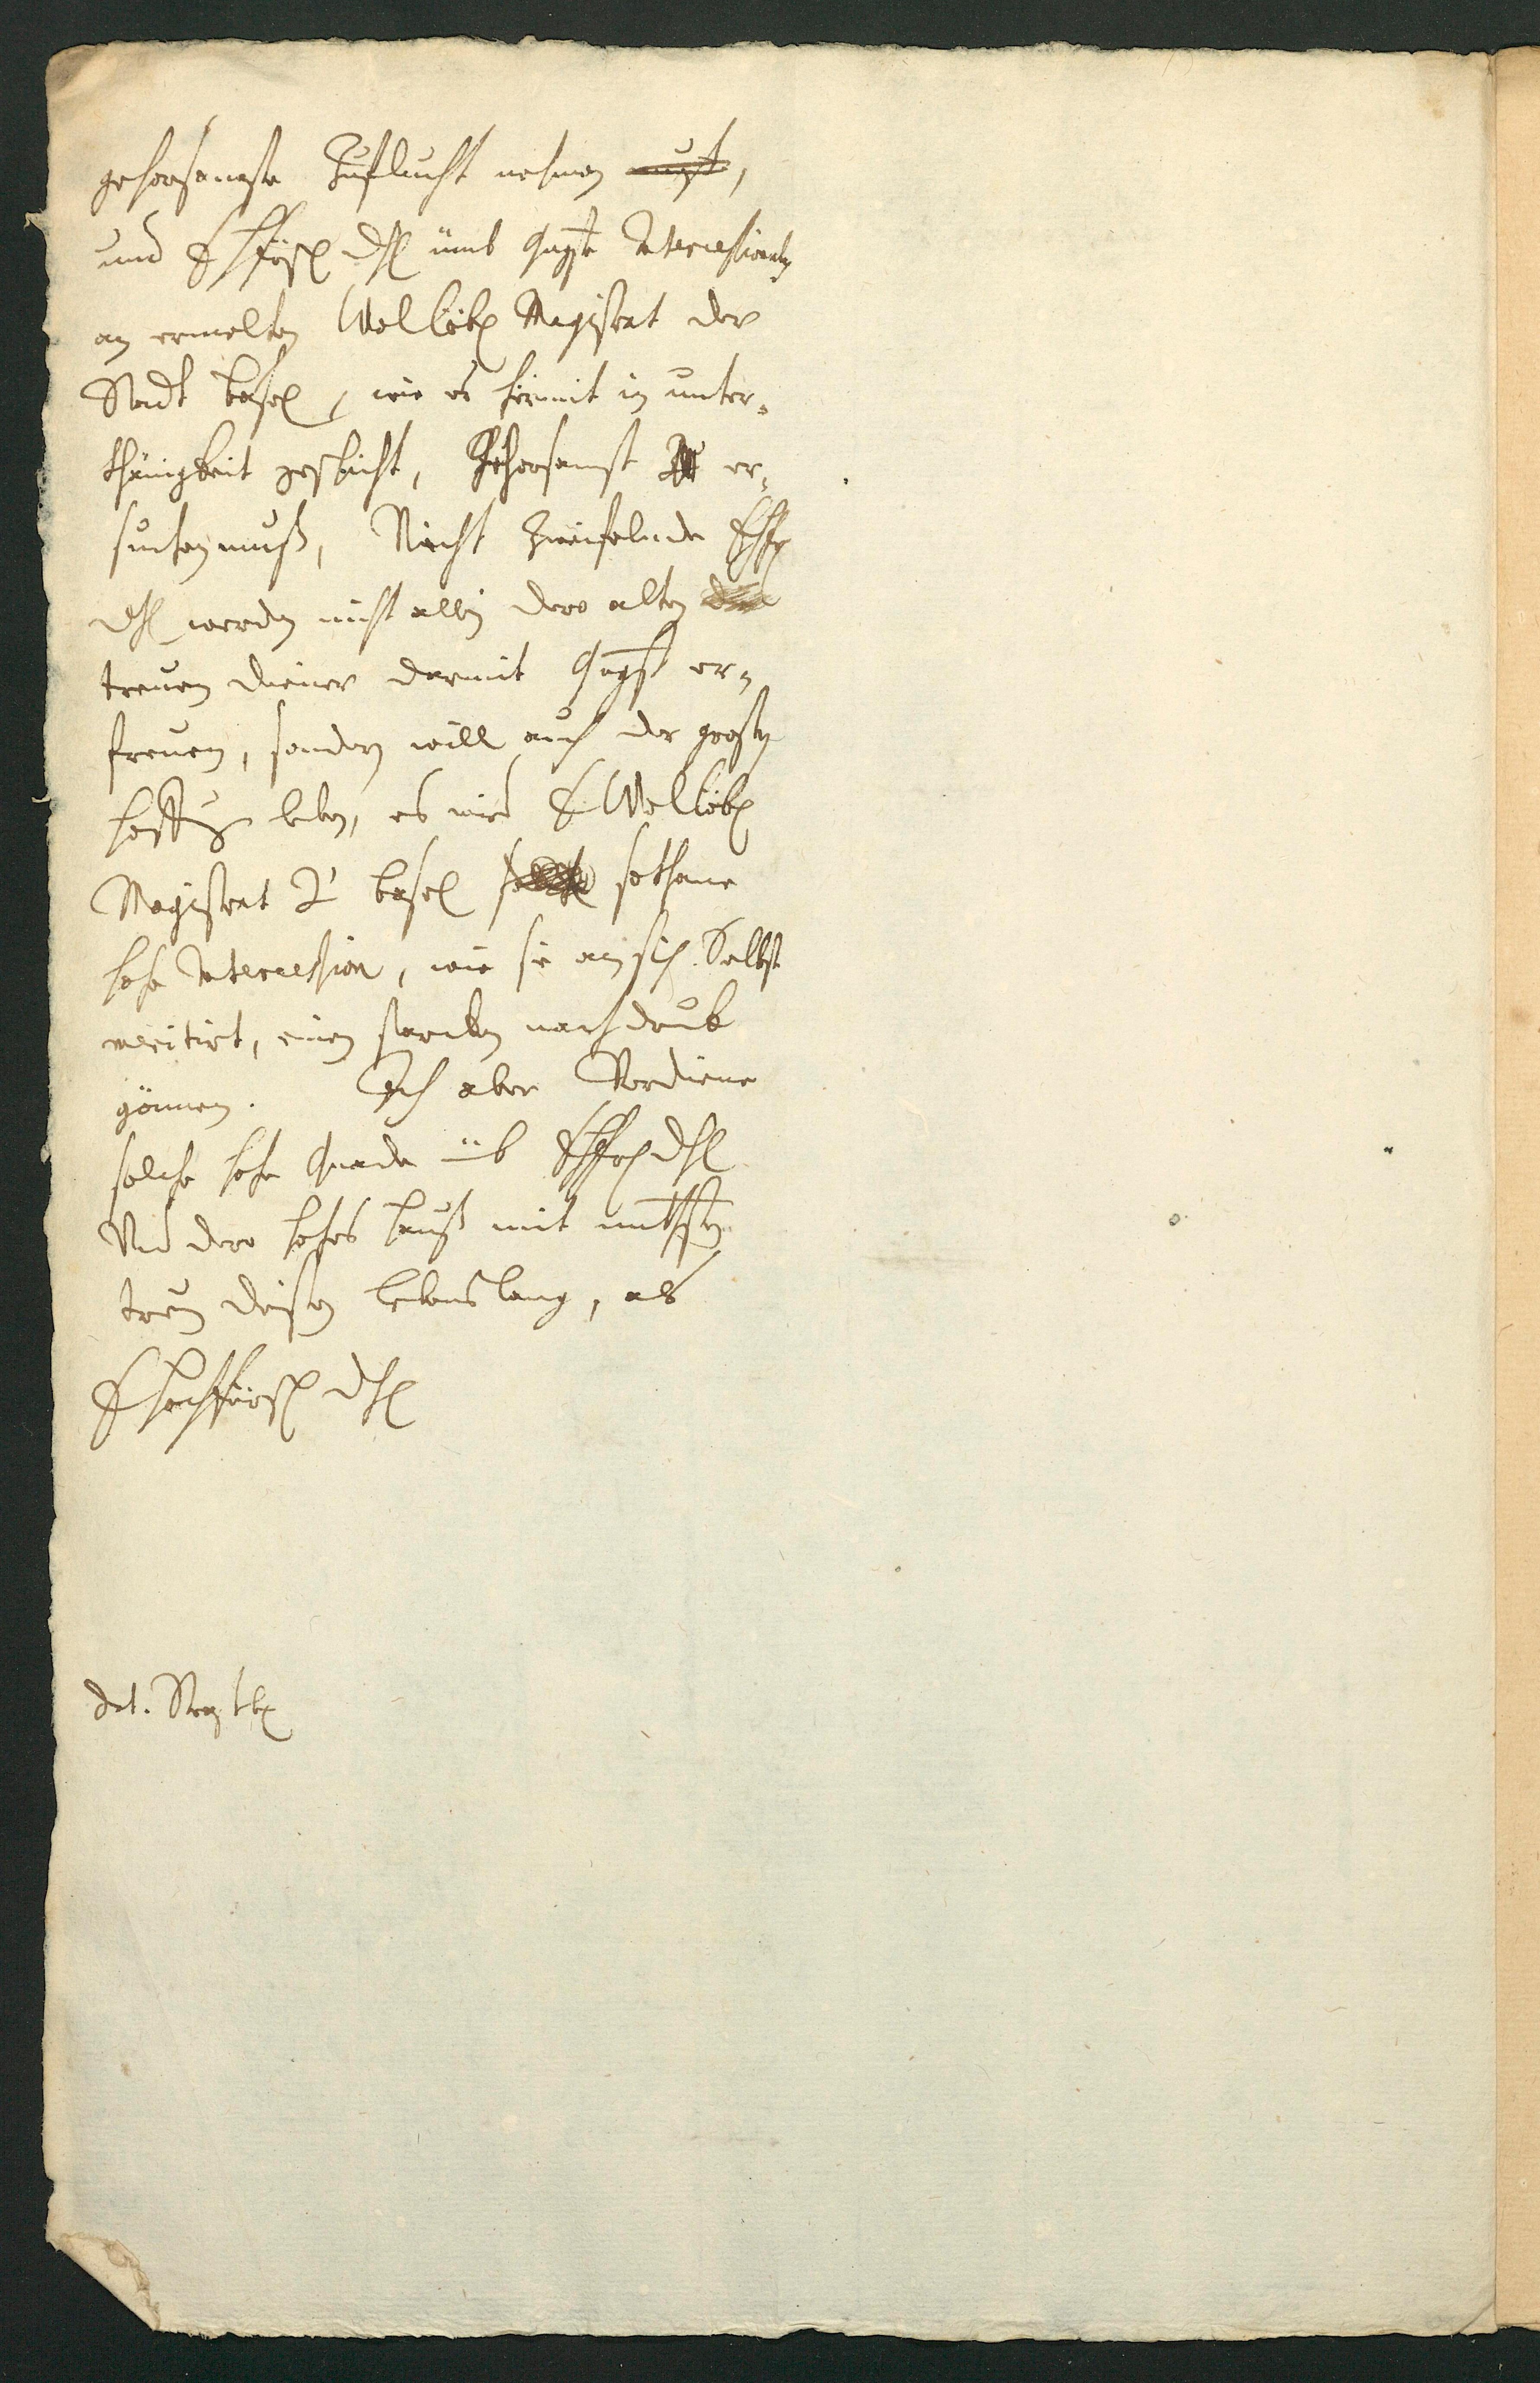 gehorsamste Zuflucht nehmen,
und E Hfürstl Dhl umb gngste Intercessionaln
an ermelten Wollöbl Magistrat der
Stadt Basel, wie es hiermit in unter-
thänigkeit geschicht, Gehorsamst zu er-
suchen muß, Nicht Zweifelnde EHfl
Dhl werden nicht allein dero alten
treuen diener darmit gngst er-
freuen, sondern will auch der großen
hoffnung leben, es wird E Wollöbl
Magistrat Zu Basel sothane
hohe Intercession, wie sie an sich Selbst
meritirt, einen starcken nachdruk
gönnen. Ich aber Verdiene
solche hohe Gnade umb EHfl Dhl
Und dero hohes hauß mit
treuen lebenslang, als
E Hochfürstl Dhl
dat.